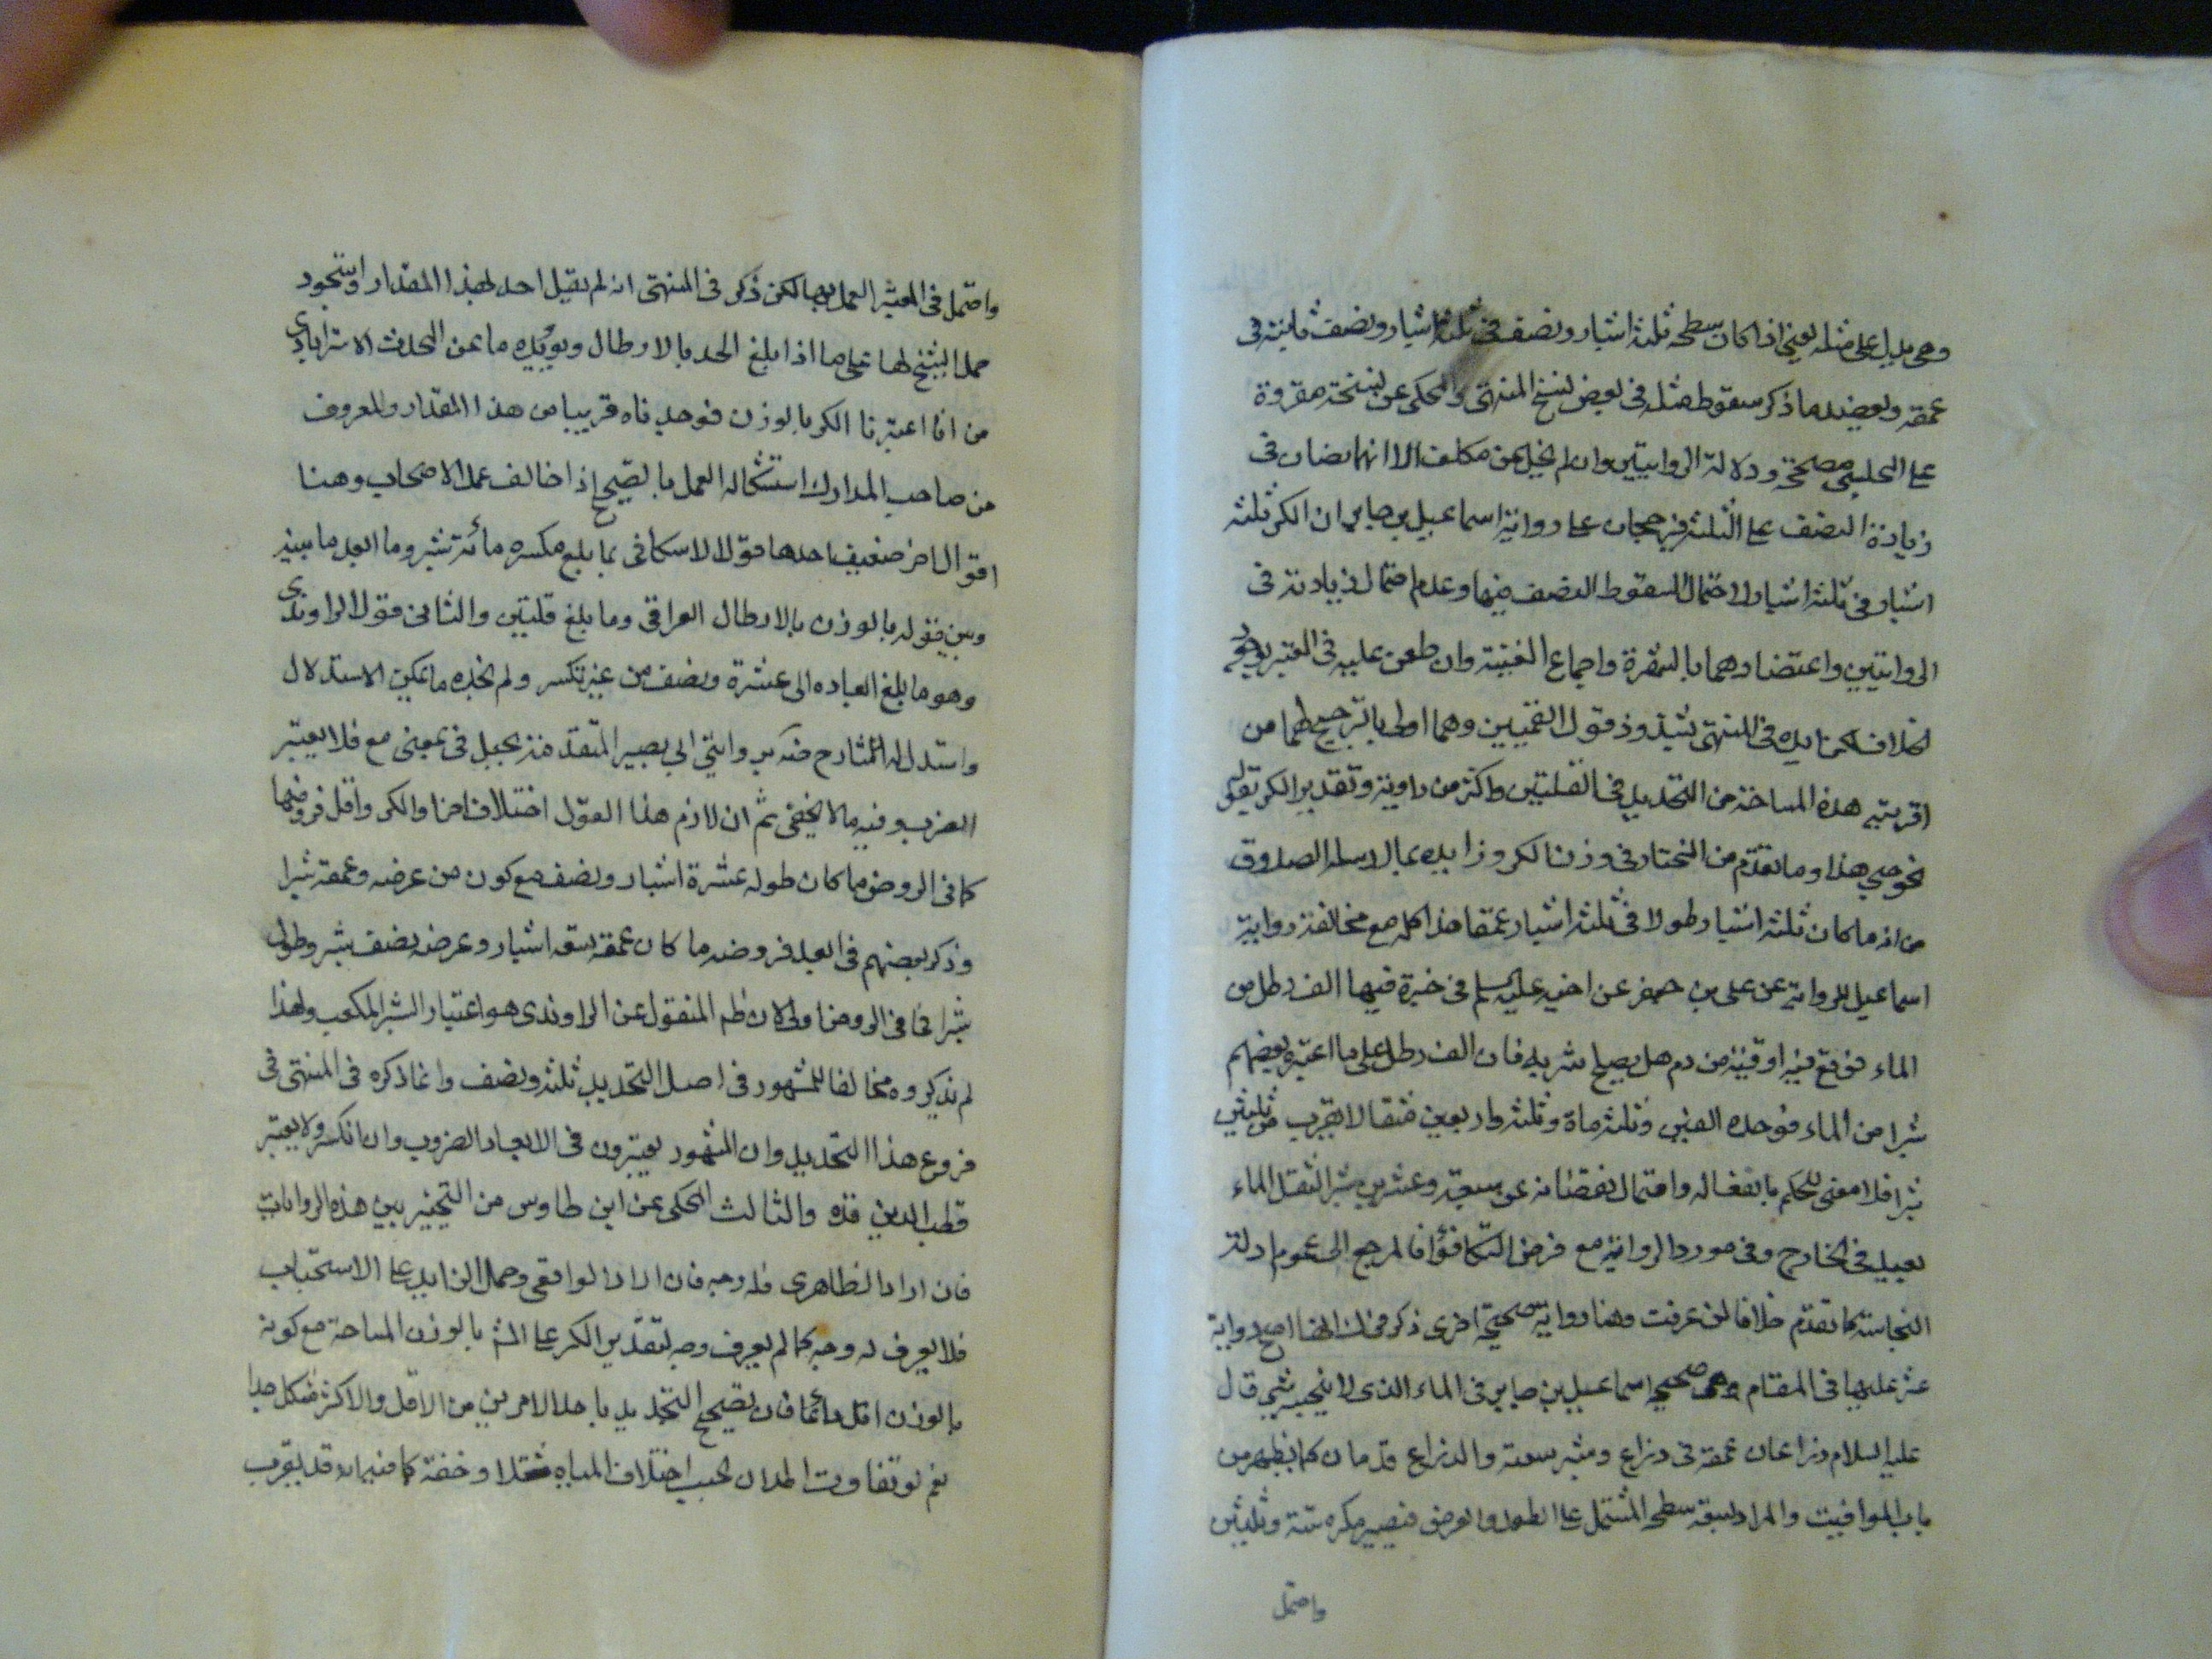 وهى يدل على مثله يعنى اذا كان سطحه ثلثة اشبار ونصف فى ثلثة اشبار ونصف ثابتة فى
عمقه ويعضده ما ذكر سقوط مثله فى بعض نسخ المنتهى والمحكى عن نسخة مقروة
على المجلسى مصححة ودلالة الروايتين وان لم يخل عن مكلف الا انهما نصان فى
زيادة النصف على الثلثة فيرجحان على رواية اسماعيل بن جابر ان الكر ثلثة
اشبار فى ثلثة اشبار لاحتمال السقوط النصف فيها وعدم احتمال زيادته فى
الروايتين واعتضادهما بالشهرة واجماع الغنية وان طعن عليه فى المعتبر بوجود
الخلاف لكن ايده فى المنتهى بشذوذ قول القميين وهما اولى بالترجيح لهما من
اقربية هذه المساحة من التحديد فى القلتين واكثر من راوية وتقدير الكر بقليب
نحو حبى هذا وما تقدم من المختار فى وزن الكر وزايده بما لارسله الصدوق
من انه ما كان ثلثة اشبار طولا فى ثلثة اشبار عمقا هذا كله مع مخالفة رواية
اسماعيل للرواية عن على بن جعفر عن اخيه عليه السلم فى جرة فيها الف رطل من
الماء فوقع فيه اوقية من دم هل يصلح شربه فان الف رطل على ما اعتبره بعضهم
شبرا من الماء فوجده الفين وثلثماة وثلثة واربعين مثقالا يقرب من ثلثين
شبرا فلا معنى للحكم بانفعاله واحتمال نقصانه عن سبعة وعشرين شبرا لثقل الماء
بعيد فى الخارج وفى مورد الرواية مع فرض التكافؤ فالمرجع الى عموم ادلة
النجاسة كما تقدم خلافا لمن عرفت وهنا رواية صحيحة اخرى ذكر فى ك انها اصح رواية
عثر عليها فى المقام وهى صحيحة اسماعيل بن جابر فى الماء الذى لا ينجسه شئ قال
عليه السلام ذراعان عمقه فى ذراع وشبر سعته والذراع قدمان كما يظهر من
باب المواقيت والمراد بسعته سطحه المشتمل على الطول والعرض فيصير مكسره ستة وثلثين
واحتمل
واحتمل فى المعتبر العمل بها لكن ذكر فى المنتهى انه لم يقل احد بهذا المقدار واستجود
حمل الشيخ لها على ما اذا بلغ الحد بالارطال ويؤيده ما عن المحدث الاسترابادى
من انا اعتبرنا الكر بالوزن فوجدناه قريبا من هذا المقدار والمعروف
من صاحب المدارك استشكاله العمل بالصحيح اذا خالف عمل الاصحاب وهنا
اقوال اخر ضعيف احدها قول الاسكافى بما بلغ مكسره مائة شبر وما ابعد ما بينه
وبين قوله بالوزن بالارطال العراقى وما بلغ قلتين والثانى قول الراوندى
وهو ما بلغ ابعاده الى عشرة ونصف من غير تكسر ولم نجد ما يمكن الاستدلال
واستدل له الشارح فذكر روايتى ابى بصير المتقدمتين بجعل فى بمعنى مع فلا يعتبر
الضرب وفيه ما لا يخفى ثم ان لازم هذا القول اختلاف افراد الكر واقل فروضها
كما فى الروض ما كان طوله عشرة اشبار ونصف مع كون من عرضه وعمقه شبرا
وذكر بعضهم فى ابعد فروضه ما كان عمقه تسعة اشبار وعرضه نصف شبر وطوله
شبرا فما فى الروض اولى لان ظم المنقول عن الراوندى هو اعتبار الشبر المكعب ولهذا
لم يذكروه مخالفا للمشهور فى اصل التحديد ثلثة ونصف وانما ذكره فى المنتهى فى
فروع هذا التحديد وان المشهور يعتبرون فى الابعاد الضروب وان انكسر ولا يعتبر
قطب الدين قده والثالث المحكى عن ابن طاوس من التخيير بين هذه الروايات
فان اراد الظاهرى فله وجه فان اراد الواقعى وحمل الزايد على الاستحباب
فلا يعرف له وجه كما لم يعرف وجه لتقدير الكر على المش بالوزن المساحة مع كونه
بالوزن اقل دائما فان تصحيح التحديد باحد الامرين من الاقل والاكثر مشكل جدا
نعم لو تفاوت المدان بحسب اختلاف المياه ثقلا وخفة كما فيما قد يقرب